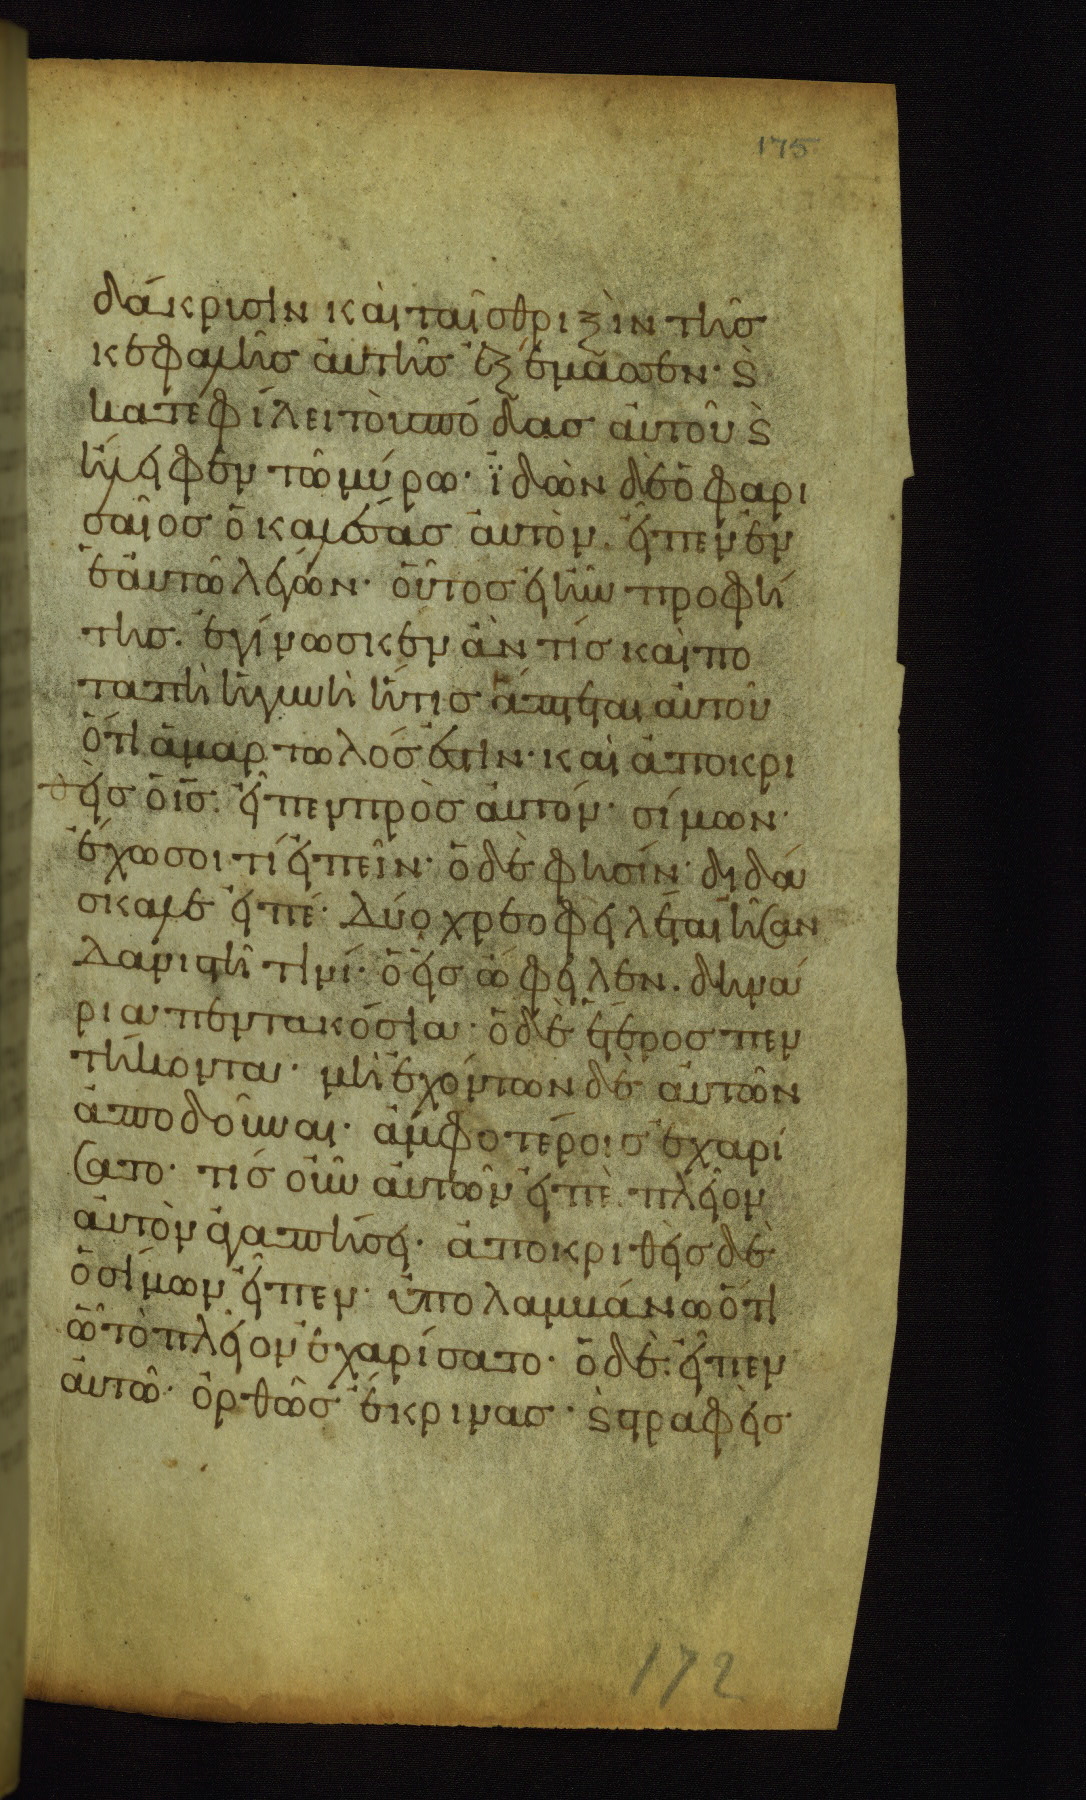 175
δάκρυσιν καὶ ταῖς θριξὶν τῆς
κεφαλῆς αὐτῆς ἐξέμαασεν· ϗ
κατεφίλει τοὺς πόδας αὐτοῦ ϗ
ἤλειφεν τῶ μύρω· ἰδὼν δὲ ὁ φαρι
σαῖος ὁ καλέσας αὐτὸν. εἶπεν ἐν
ἑαυτῶ λέγων· οὗτος εἰ ἦν προφή
της. ἐγίνωσκεν ἂν τίς καὶ πο
ταπὴ ἡ γυνὴ ἥτις ἅπτεται αὐτοῦ
ὅτι ἁμαρτωλός ἐστιν· καὶ ἀποκρι
θεὶς ὁ ι̅ς̅. εἶπεν πρὸς αὐτόν· σίμων·
ἔχω σοι τί εἰπεῖν· ὁ δὲ φησίν· διδά
σκαλε εἰπέ· δύο χρεοφειλέται ἦσαν
δανιστῆ τινί· ὁ εἷς ὤφειλεν. δηνά
ρια πεντακόσια· ὁ δὲ ἕτερος πεν
τήκοντα· μὴ ἐχόντων δὲ αὐτῶν
ἀποδοῦναι· ἀμφοτέροις ἐχαρί
σατο· τίς οὖν αὐτῶν εἰπὲ πλεῖον
αὐτὸν ἀγαπήσει· ἀποκριθεὶς δὲ
ὁ σίμων εἶπεν· ὑπολαμβάνω ὅτι
ὧ τὸ πλεῖον ἐχαρίσατο· ὁ δὲ. εἶπεν
αὐτῶ· ὀρθῶς ἔκρινας· ϗ στραφεὶς
172